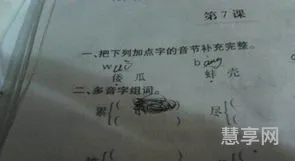 第7课
一、把下列加点字的音节补充完整。
b ang
傻 瓜 蚌 壳
二、多音字组词。
累{( 尽{(
慧享网